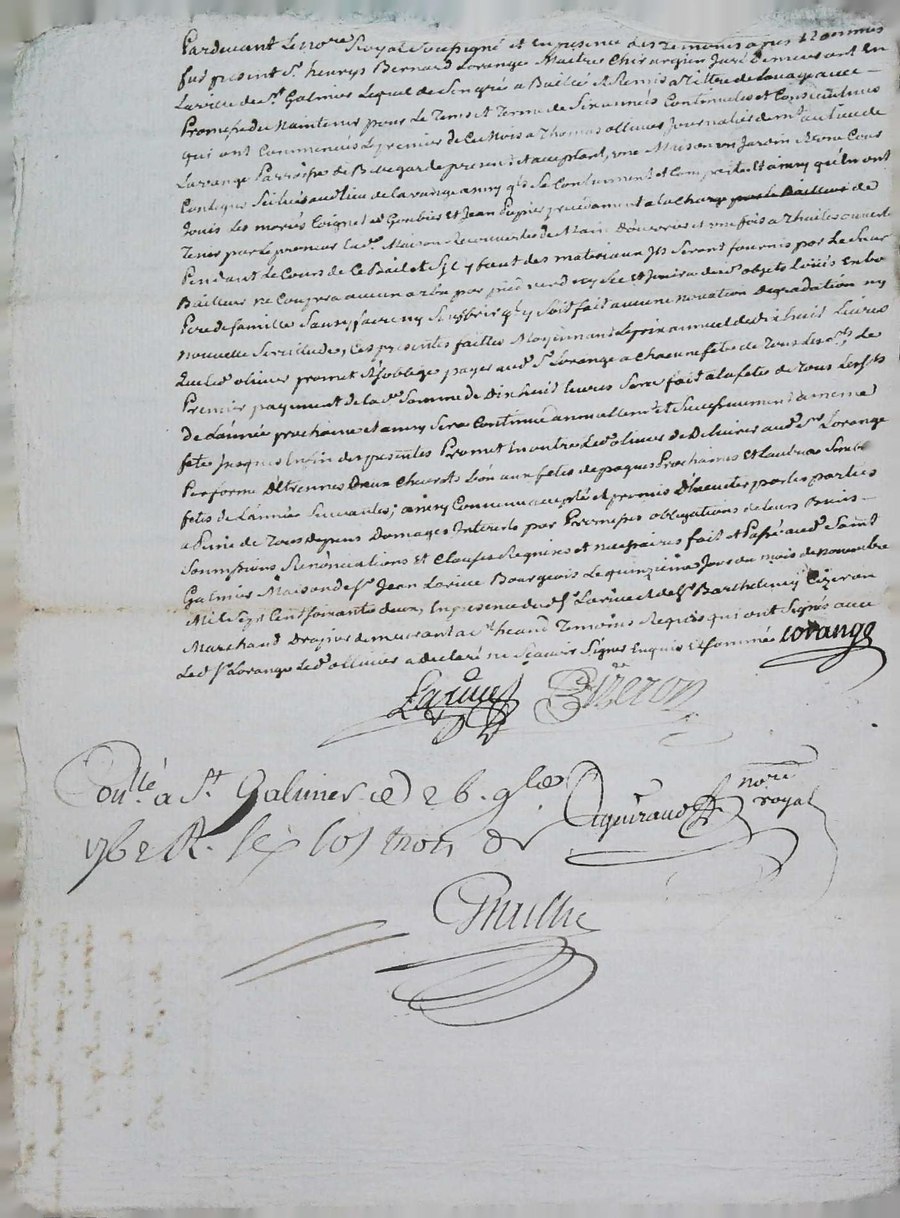 Pardevant Le no.re Royal Soussigné et En presence des temoins apres Nommes
fut present S.r henrys Bernard Lorange Maitre Chirurgien Juré demeurant En
La ville de S.t Galmier Lequel de Son gré a Baillé et Remis a tiltre de Louage avec
Promesse de Maintenir pour Le Tems et Terme de Six années Continuelles et Consecutives
qui ont Commencés Le premier de Ce Mois a Thomas ollivier Journalier dem.t au Lieu de
Lavange Parroisse de Bellegarde present et acceptant, une Maison un Jardin et une Cour
Contigue Scitués aud. Lieu de la vange ainsy qu'ils Se Confinent et Comportent et ainsy qu'en ont
Jouis Les mariés Coignet et Goubier et Jean Papier precedament a la Charge par le Bailleur de
Tenir par Le preneur Lad.e Maison Recouverte de Main D'ouvriers et une fois a Thuiles ouverte
Pendant Le Cours de Ce Bail et S'il y faut des materiaux Ils Seront fournis par Led. Sieur
Bailleur ne Coupera aucun arbre par pied verd ny Sec et Jouira desd. objets Louës En bon
Pere de famille Sans y faire ny Souffrir qu'il y Soit fait aucune novation Degradation ny
nouvelle Servitude, Ces presentes faittes Moyennant Le prix annuel de dix huit Livres
que Led. olivier promet et S'obliger payer aud. S.r Lorange a Chacune fetes de Tous Les S.ts Le
Premier payement de la d.e Somme de Dix huit Livres Sera fait a la fetes de Tous Les S.ts
de L'année prochaine et ainsy Sera Continué annuellem.t et Successivement a meme
fetes Jusques En fin des presentes Promet En outre Led. olivier de Delivrer aud. S.r Lorange
Par forme D'Etrennes Deux Chevrots L'un aux fetes de paques Prochaines Et L'autre a Semb.le
fetes de L'année Suivante; ainsy Convenu accepté et promis D'Executer par les parties
a Peine de Tous depens Domages Interets par Promesses obligations de Leurs Biens
Soumissions Renonciations et Clauses Requises et necessaires fait et Passé aud. Saint
Galmier Maison de S.r Jean Larive Bourgeois Le quinzieme Jour du mois de novembre
Mil Sept Cent Soixante deux, En presence dud. S.r Larive et de S.r Barthelemy Cizeron
Marchand Drapier demeurant a S.t heand Temoins Requis qui ont Signés avec
Led. S.r Lorange Led. ollivier a declaré ne Scavoir Signer Enquis Et Sommé Lorange
Larive Cizeron
Con.lé a S.t Galmier Le 26 9bre
1762 R. Six Sols trois d.r
no.re royal